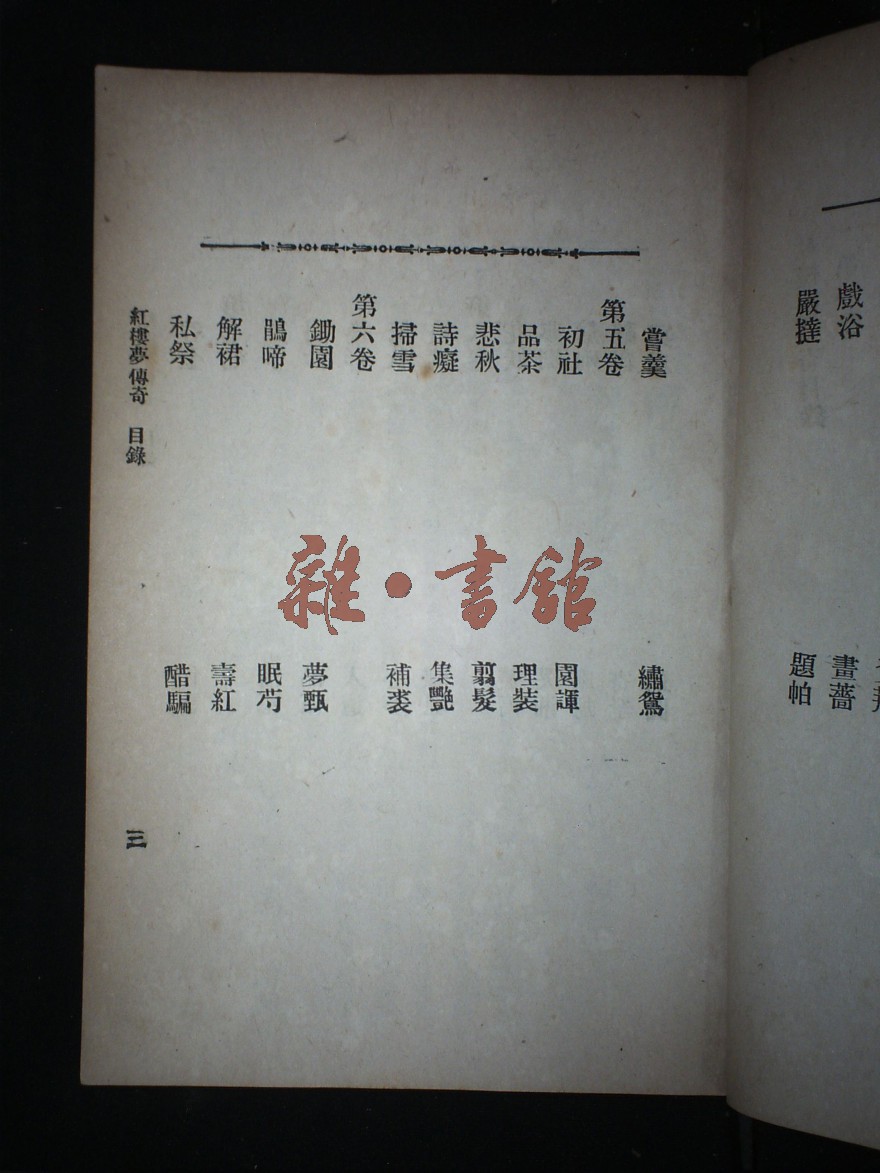 戲浴 畫薔
嚴撻 題帕
嘗羹 繡鴛
第五卷
初社 園諢
品茶 理裝
悲秋 翦髮
詩癡 集艷
掃雪 補裘
第六卷
鋤園 夢甄
鵑啼 眠芍
解裙 壽紅
私祭 醋騙
紅樓夢傳奇 目錄 三
雜·書館